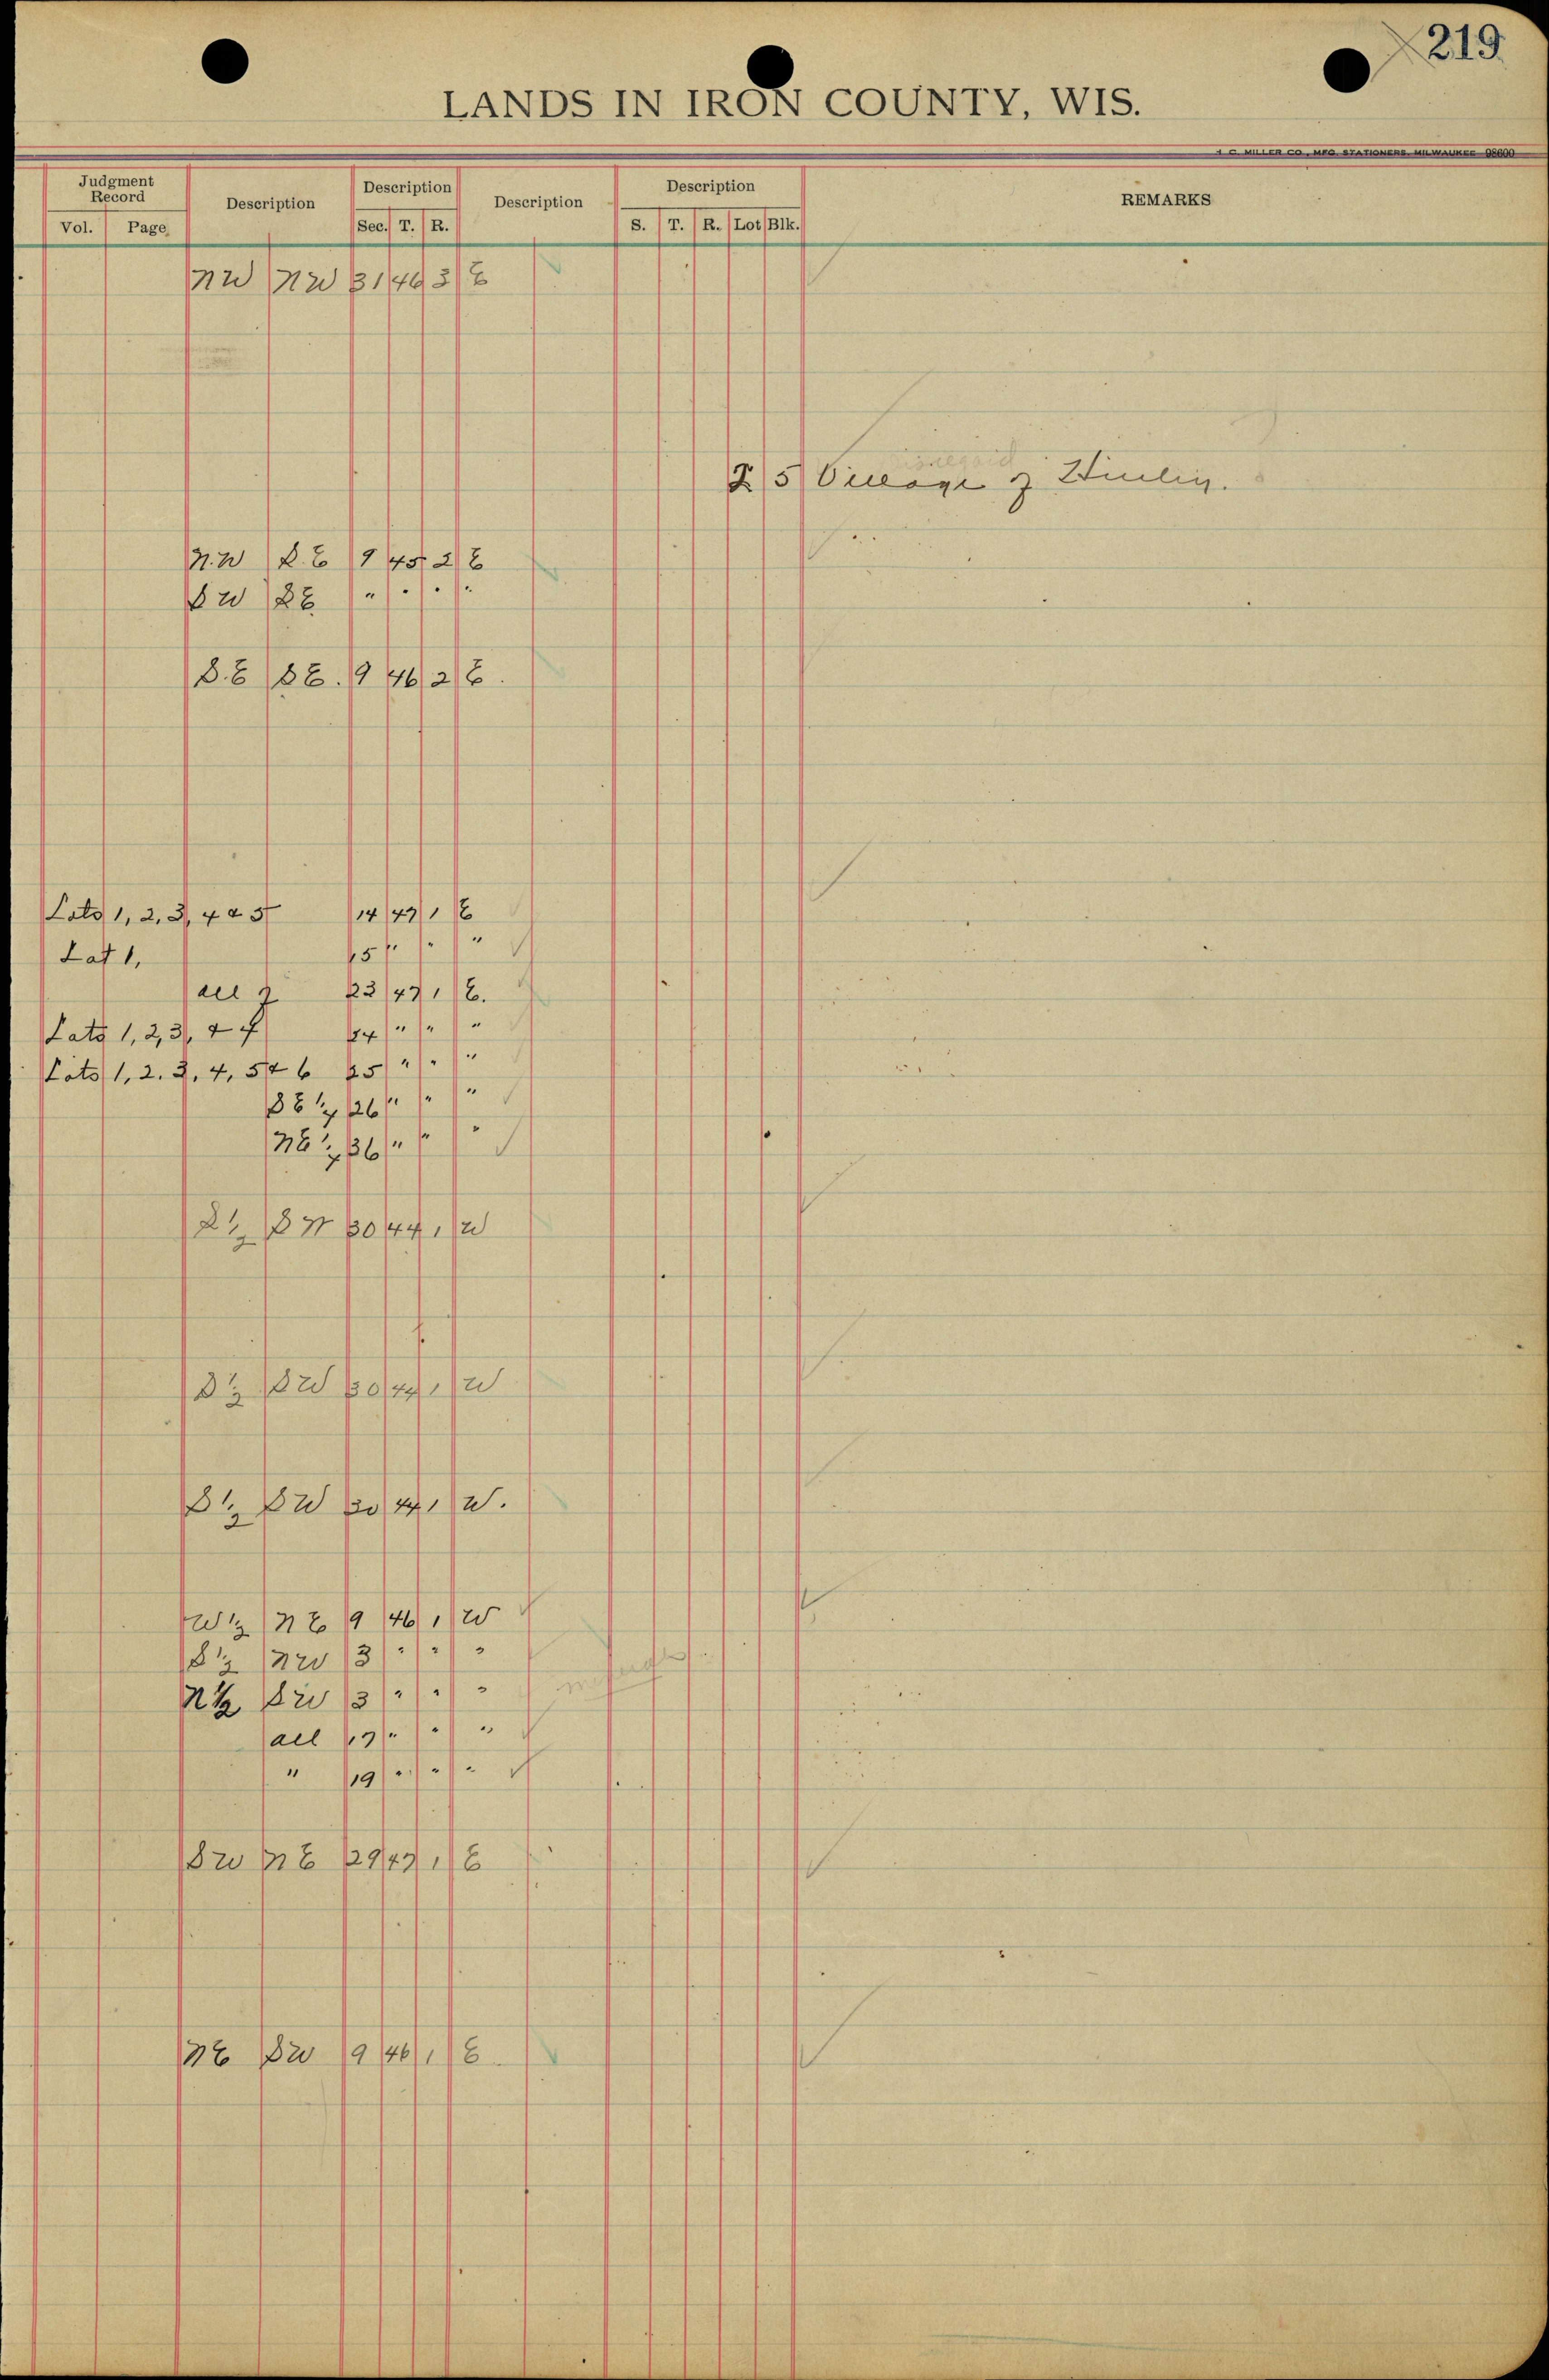 219
LANDS IN IRON COUNTY, WIS.
MILLER CO., MFG. STATIONERS, MILWAUKEE 98600
Judgment Record Description Description Description Description REMARKS
Vol. Page Sec. T. R. S. T. R. Lot Blk.
NW NW 31 46 3 E
2 5 Village of Hurley.
N.W S.E 9 45 2 E
SW SE " " " "
S.E SE. 9 46 2 E.
Lots 1, 2, 3, 4 & 5 14 47 1 E
Lot 1, 15 " " "
all of 23 47 1 E.
Lots 1, 2, 3, & 4 24 " " "
Lots 1, 2, 3, 4, 5 & 6 25 " " "
SE 1/4 26 " " "
NE 1/4 36 " " "
S 1/2 SW 30 44 1 W
S 1/2 SW 30 44 1 W
S 1/2 SW 30 44 1 W.
W 1/2 NE 9 46 1 W
S 1/2 NW 3 " " "
N 1/2 SW 3 " " "
all 17 " " "
" 19 " " "
SW NE 29 47 1 E
NE SW 9 46 1 E.